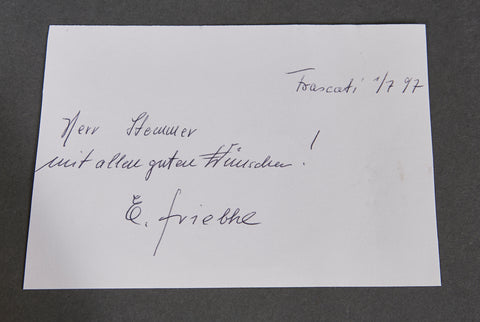 Frascati 1/7 97
Herr Stemmer
mit allen guten Wünschen!
E. Priebke